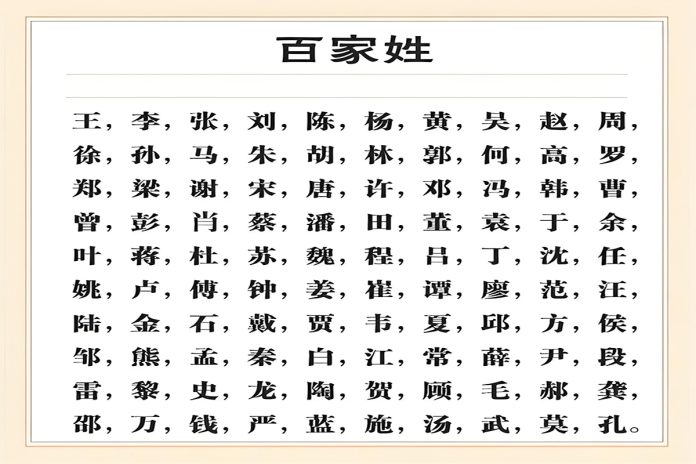 百家姓
王，李，张，刘，陈，杨，黄，吴，赵，周，
徐，孙，马，朱，胡，林，郭，何，高，罗，
郑，梁，谢，宋，唐，许，邓，冯，韩，曹，
曾，彭，肖，蔡，潘，田，董，袁，于，余，
叶，蒋，杜，苏，魏，程，吕，丁，沈，任，
姚，卢，傅，钟，姜，崔，谭，廖，范，汪，
陆，金，石，戴，贾，韦，夏，邱，方，侯，
邹，熊，孟，秦，白，江，常，薛，尹，段，
雷，黎，史，龙，陶，贺，顾，毛，郝，龚，
邵，万，钱，严，蓝，施，汤，武，莫，孔。